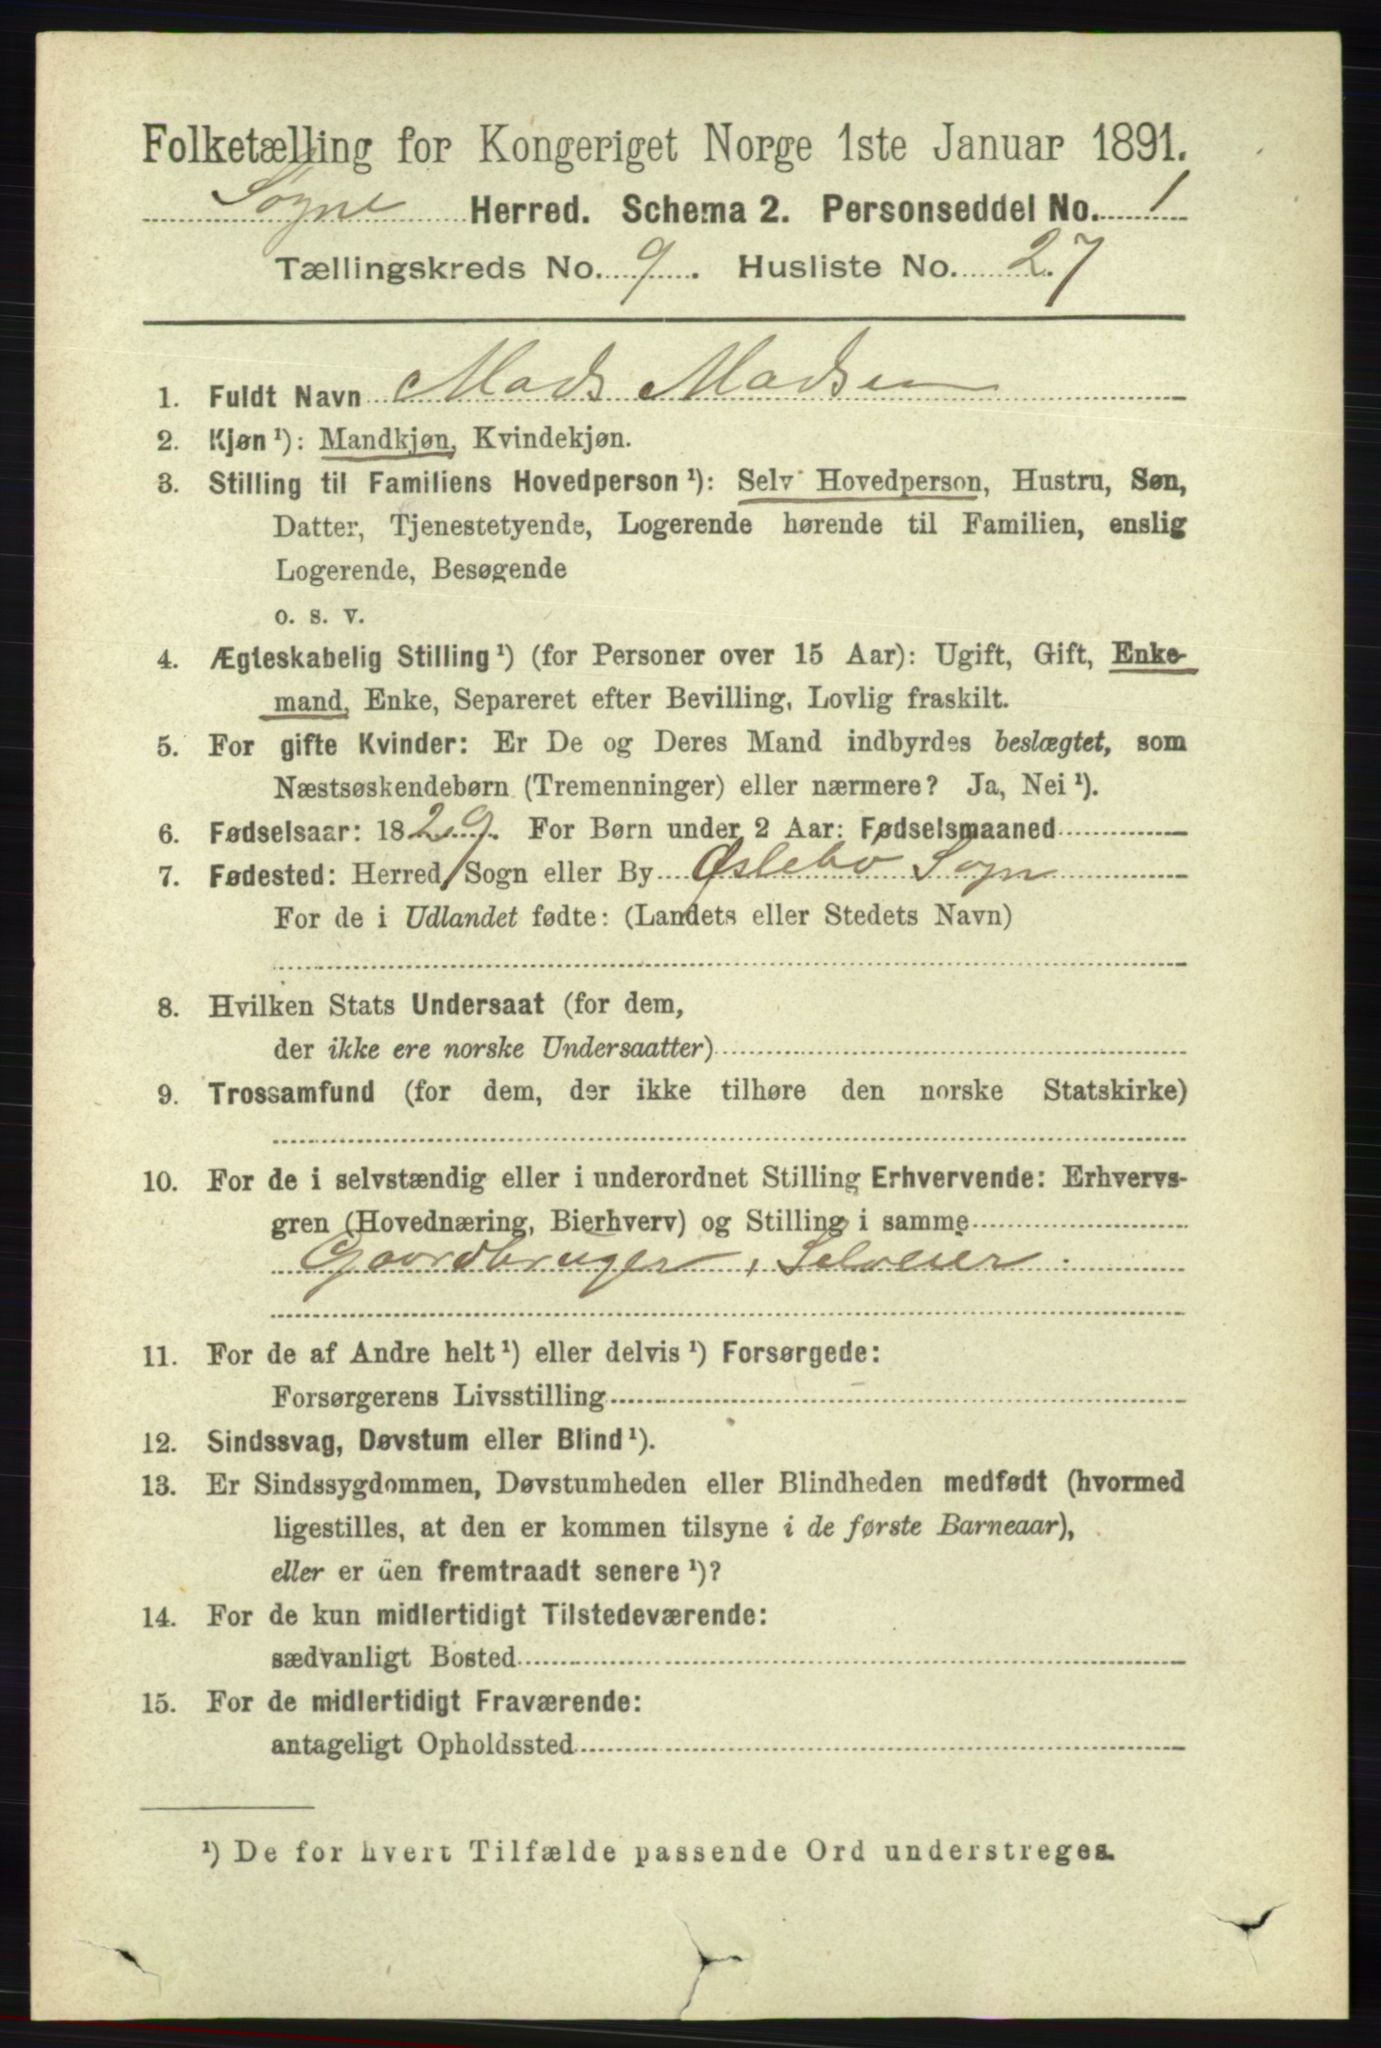 Folketælling for Kongeriget Norge 1ste Januar 1891.
Søgne Herred. Schema 2. Personseddel No. 1
Tællingskreds No. 9. Husliste No. 27
1. Fuldt Navn Mads Madsen
2. Kjøn¹): Mandkjøn, Kvindekjøn.
3. Stilling til Familiens Hovedperson¹): Selv Hovedperson, Hustru, Søn,
Datter, Tjenestetyende, Logerende hørende til Familien, enslig
Logerende, Besøgende
o. s. v.
4. Ægteskabelig Stilling¹) (for Personer over 15 Aar): Ugift, Gift, Enke-
mand, Enke, Separeret efter Bevilling, Lovlig fraskilt.
5. For gifte Kvinder: Er De og Deres Mand indbyrdes beslægtet, som
Næstsøskendebørn (Tremenninger) eller nærmere? Ja, Nei¹).
6. Fødselsaar: 1829. For Børn under 2 Aar: Fødselsmaaned
7. Fødested: Herred, Sogn eller By Øslebø Sogn
For de i Udlandet fødte: (Landets eller Stedets Navn)
8. Hvilken Stats Undersaat (for dem,
der ikke ere norske Undersaatter)
9. Trossamfund (for dem, der ikke tilhøre den norske Statskirke)
10. For de i selvstændig eller i underordnet Stilling Erhvervende: Erhvervs-
gren (Hovednæring, Bierhverv) og Stilling i samme
Gaardbruger, Selveier.
11. For de af Andre helt¹) eller delvis¹) Forsørgede:
Forsørgerens Livsstilling
12. Sindssvag, Døvstum eller Blind¹).
13. Er Sindssygdommen, Døvstumheden eller Blindheden medfødt (hvormed
ligestilles, at den er kommen tilsyne i de første Barneaar),
eller er den fremtraadt senere¹)?
14. For de kun midlertidigt Tilstedeværende:
sædvanligt Bosted
15. For de midlertidigt Fraværende:
antageligt Opholdssted
¹) De for hvert Tilfælde passende Ord understreges.